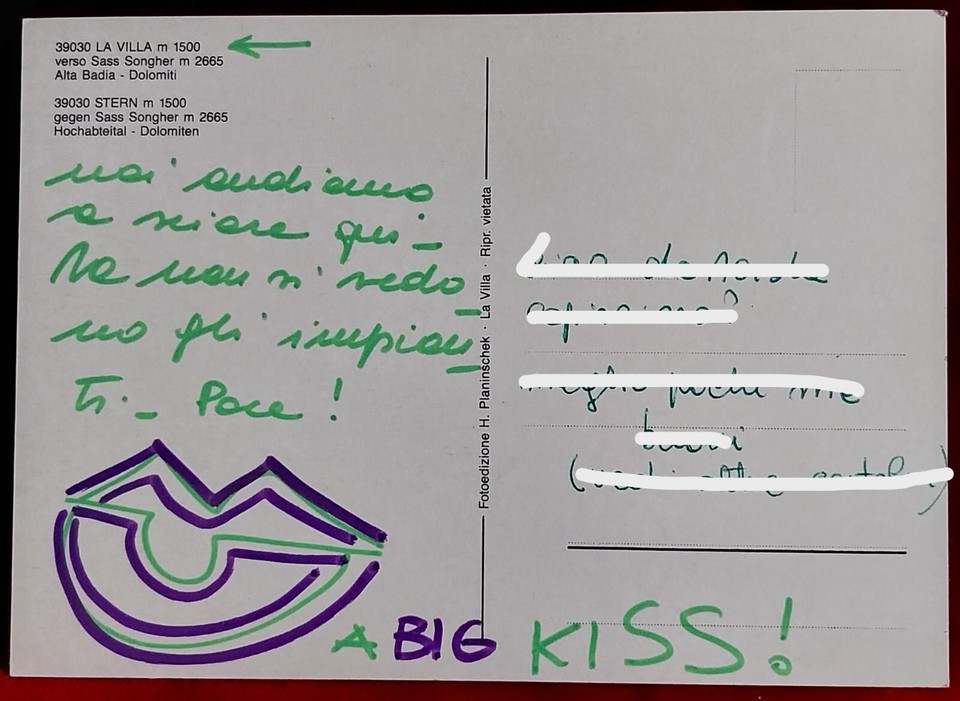 39030 LA VILLA m 1500
verso Sass Songher m 2665
Alta Badia - Dolomiti
39030 STERN m 1500
gegen Sass Songher m 2665
Hochabteital - Dolomiten
noi andiamo
a sciare qui _
Ma non si vedo_
no gli impian_
ti. _ Pace !
Fotoedizione H. Planinschek · La Villa · Ripr. vietata
meglio pochi ma
buoni
A BIG KISS!